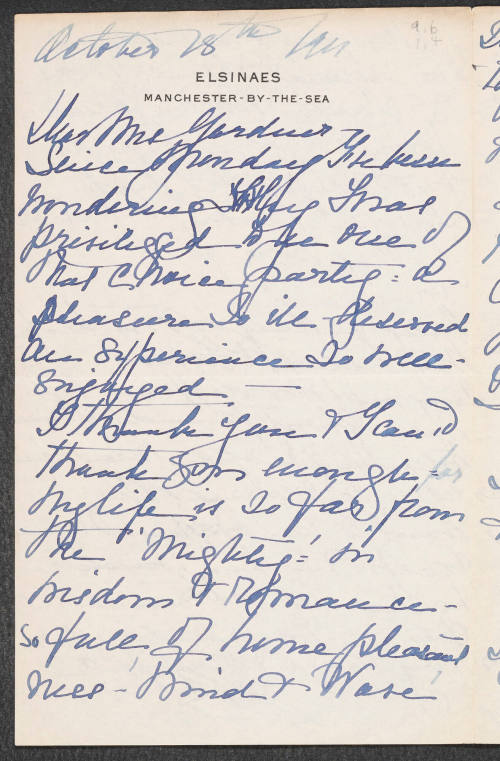 October 18th 1911
ELSINAES
MANCHESTER-BY-THE-SEA
Dear Mrs Gardner -
Since Monday I've been
wondering Why I was
privileged to be one of
that Choice party: a
pleasure so ill-deserved
an Experience so well-
Enjoyed —
I thank you & I can't
thank you enough - for
my life is so far from
the "Mighty" in
wisdom & Romance -
so full of home pleasant
ness - Wind & Wave